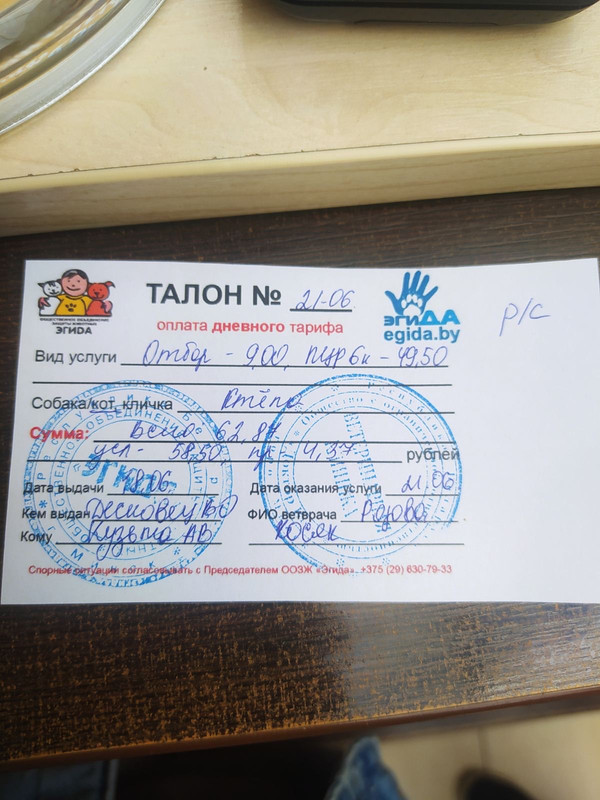 ТАЛОН № 21-06
оплата дневного тарифа
ОБЩЕСТВЕННОЕ ОБЪЕДИНЕНИЕ
ЗАЩИТЫ ЖИВОТНЫХ
ЭГИДА
эгиДА
egida.by
р/с
Вид услуги Отбор - 9,00, ПЦР 6к - 49,50
Собака/кот, кличка Стёпа
Сумма: Всего 62,87
усл - 58,50 пр 4,37 рублей
Дата выдачи 18.06 Дата оказания услуги 21.06
Кем выдан ФИО ветврача
Кому Кузьма АВ Косяк
Спорные ситуации согласовывать с Председателем ООЗЖ «Эгида». +375 (29) 630-79-33